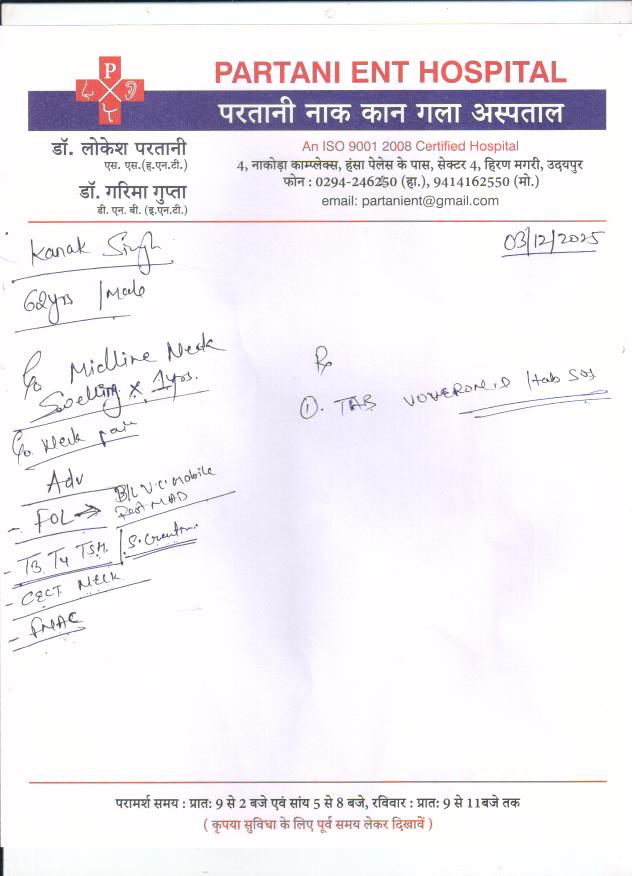 P
PARTANI ENT HOSPITAL
परतानी नाक कान गला अस्पताल
डॉ. लोकेश परतानी
एस. एस.(ह.एन.टी.)
डॉ. गरिमा गुप्ता
डी. एन. बी. (इ.एन.टी.)
An ISO 9001 2008 Certified Hospital
4, नाकोड़ा काम्प्लेक्स, हंसा पेलेस के पास, सेक्टर 4, हिरण मगरी, उदयपुर
फोन : 0294-246250 (हा.), 9414162550 (मो.)
email: partanient@gmail.com
Kanak Singh
03/12/2025
62yrs / Male
C/o Midline Neck
Swelling x 1yrs.
C/o Neck pain
Rx
①. TAB VOVERON.D 1tab SOS
Adv
- FOL → B/L V.C. Mobile
Rest NAD
- T3 T4 TSH / S. Creatn.
- CECT NECK
- FNAC
परामर्श समय : प्रात: 9 से 2 बजे एवं सांय 5 से 8 बजे, रविवार : प्रात: 9 से 11बजे तक
( कृपया सुविधा के लिए पूर्व समय लेकर दिखावें )